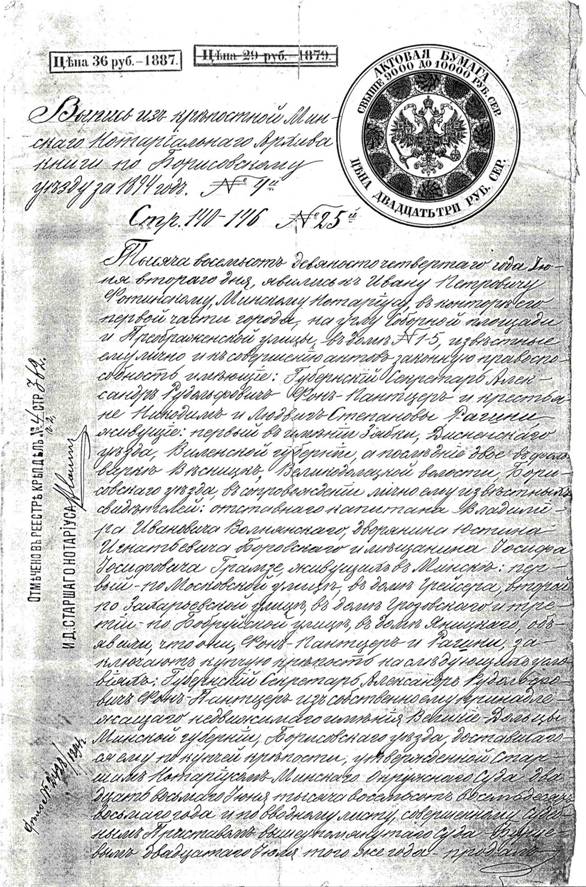 Цѣна 36 руб.–1887.
Цѣна 29 руб. 1879.
АКТОВАЯ БУМАГА
СВЫШЕ 9000 ДО 10000 РУБ. СЕР.
ЦѢНА ДВАДЦАТЬ ТРИ РУБ. СЕР.
Выпись изъ крѣпостной Мин-
скаго Нотаріальнаго Архива
книги по Борисовскому
уѣзду за 1894 годъ. № 4й
Стр. 140-146 № 25й
Тысяча восемьсотъ девяносто четвертаго года Iю-
ня втораго дня, явились къ Ивану Петровичу
Фотинскому, Минскому Нотаріусу, въ контору его
первой части города, на углу Соборной площади
и Преображенской улицы, въ домѣ № 1-5, извѣстные
ему лично и къ совершенію актовъ законную правоспо-
собность имѣющіе: Губернскій Секретарь Алек-
сандръ Рудольфовичъ Фонъ-Пантцеръ и крестья-
не Никодимъ и Людвигъ Степановы Рагини
живущіе: первый въ имѣніи Зябки, Дисненскаго
уѣзда, Виленской губерніи, а послѣдніе двое въ фоль-
варкѣ Великодолецкой волости Бори-
совскаго уѣзда, въ сопровожденіи лично ему извѣстныхъ
свидѣтелей: отставнаго капитана Владимі-
ра Ивановича Волнянскаго, дворянина Юстина
Игнатьевича Боровскаго и мѣщанина Осифа
Осифовича живущихъ въ Минскѣ: пер-
вый - по Московской улицѣ, въ домѣ Грейера, второй
по Захарьевской улицѣ, въ домѣ и тре-
тій - по Бобруйской улицѣ, въ домѣ Яницкаго, объ-
явили, что они, Фонъ-Пантцеръ и Рагини, за-
ключаютъ купчую крѣпость на слѣдующихъ усло-
віяхъ: Губернскій Секретарь Александръ Рудольфо-
вичъ Фонъ-Пантцеръ изъ собственному принадле-
жащаго недвижимаго имѣнія Великіе Дольцы
Минской губерніи, Борисовскаго уѣзда, доставшаго-
ся ему по купчей крѣпости, утвержденной Стар-
шимъ Нотаріусомъ Минскаго Окружнаго Суда Два-
дцать восьмаго Iюня тысяча восемьсотъ восемьдесятъ
восьмаго года и по вводному листу, совершенному Суде-
нымъ Приставомъ вышеупомянутаго Суда
вымъ двадцатаго Iюля того же года - продалъ
ОТМѢЧЕНО ВЪ РЕЕСТРѢ КРѢП. ДѢЛЪ № СТР.
И.Д. СТАРШАГО НОТАРІУСА